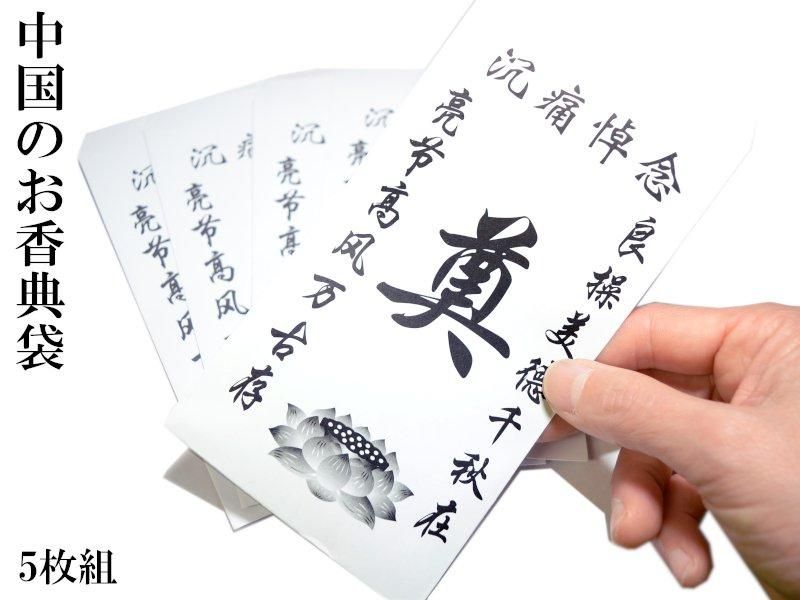 中国のお香典袋
5枚組
沉痛悼念
良操美德千秋在
奠
亮节高风万古存
沉
亮节高风
沉痛
亮节高风
沉
亮节高
沉
亮节